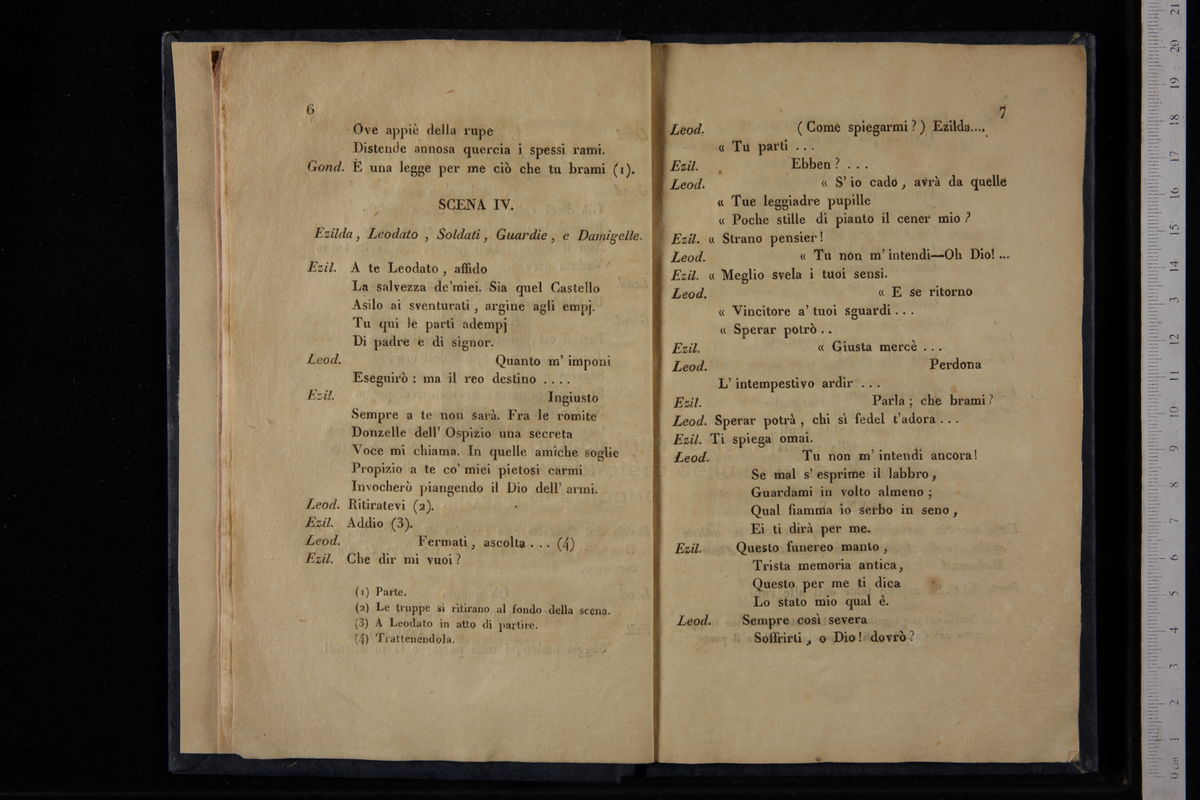 6
Ove appiè della rupe
Distende annosa quercia i spessi rami.
Gond. È una legge per me ciò che tu brami (1).
SCENA IV.
Ezilda, Leodato, Soldati, Guardie, e Damigelle.
Ezil. A te Leodato, affido
La salvezza de'miei. Sia quel Castello
Asilo ai sventurati, argine agli empj.
Tu qui le parti adempj
Di padre e di signor.
Leod. Quanto m'imponi
Eseguirò: ma il reo destino ....
Ezil. Ingiusto
Sempre a te non sarà. Fra le romite
Donzelle dell' Ospizio una secreta
Voce mi chiama. In quelle amiche soglie
Propizio a te co' miei pietosi carmi
Invocherò piangendo il Dio dell' armi.
Leod. Ritiratevi (2).
Ezil. Addio (3).
Leod. Fermati, ascolta ... (4)
Ezil. Che dir mi vuoi?
(1) Parte.
(2) Le truppe si ritirano al fondo della scena.
(3) A Leodato in atto di partire.
(4) Trattenendola.
7
Leod. (Come spiegarmi?) Ezilda....
« Tu parti ...
Ezil. Ebben? ...
Leod. « S' io cado, avrà da quelle
« Tue leggiadre pupille
« Poche stille di pianto il cener mio?
Ezil. « Strano pensier!
Leod. « Tu non m' intendi—Oh Dio! ...
Ezil. « Meglio svela i tuoi sensi.
Leod. « E se ritorno
« Vincitore a' tuoi sguardi...
« Sperar potrò..
Ezil. « Giusta mercè ...
Leod. Perdona
L' intempestivo ardir ...
Ezil. Parla; che brami?
Leod. Sperar potrà, chi sì fedel t'adora...
Ezil. Ti spiega omai.
Leod. Tu non m' intendi ancora!
Se mal s' esprime il labbro,
Guardami in volto almeno;
Qual fiamma io serbo in seno,
Ei ti dirà per me.
Ezil. Questo funereo manto,
Trista memoria antica,
Questo per me ti dica
Lo stato mio qual è.
Leod. Sempre così severa
Soffrirti, o Dio! dovrò?
0 cm 1 2 3 4 5 6 7 8 9 10 11 12 13 14 15 16 17 18 19 20 21